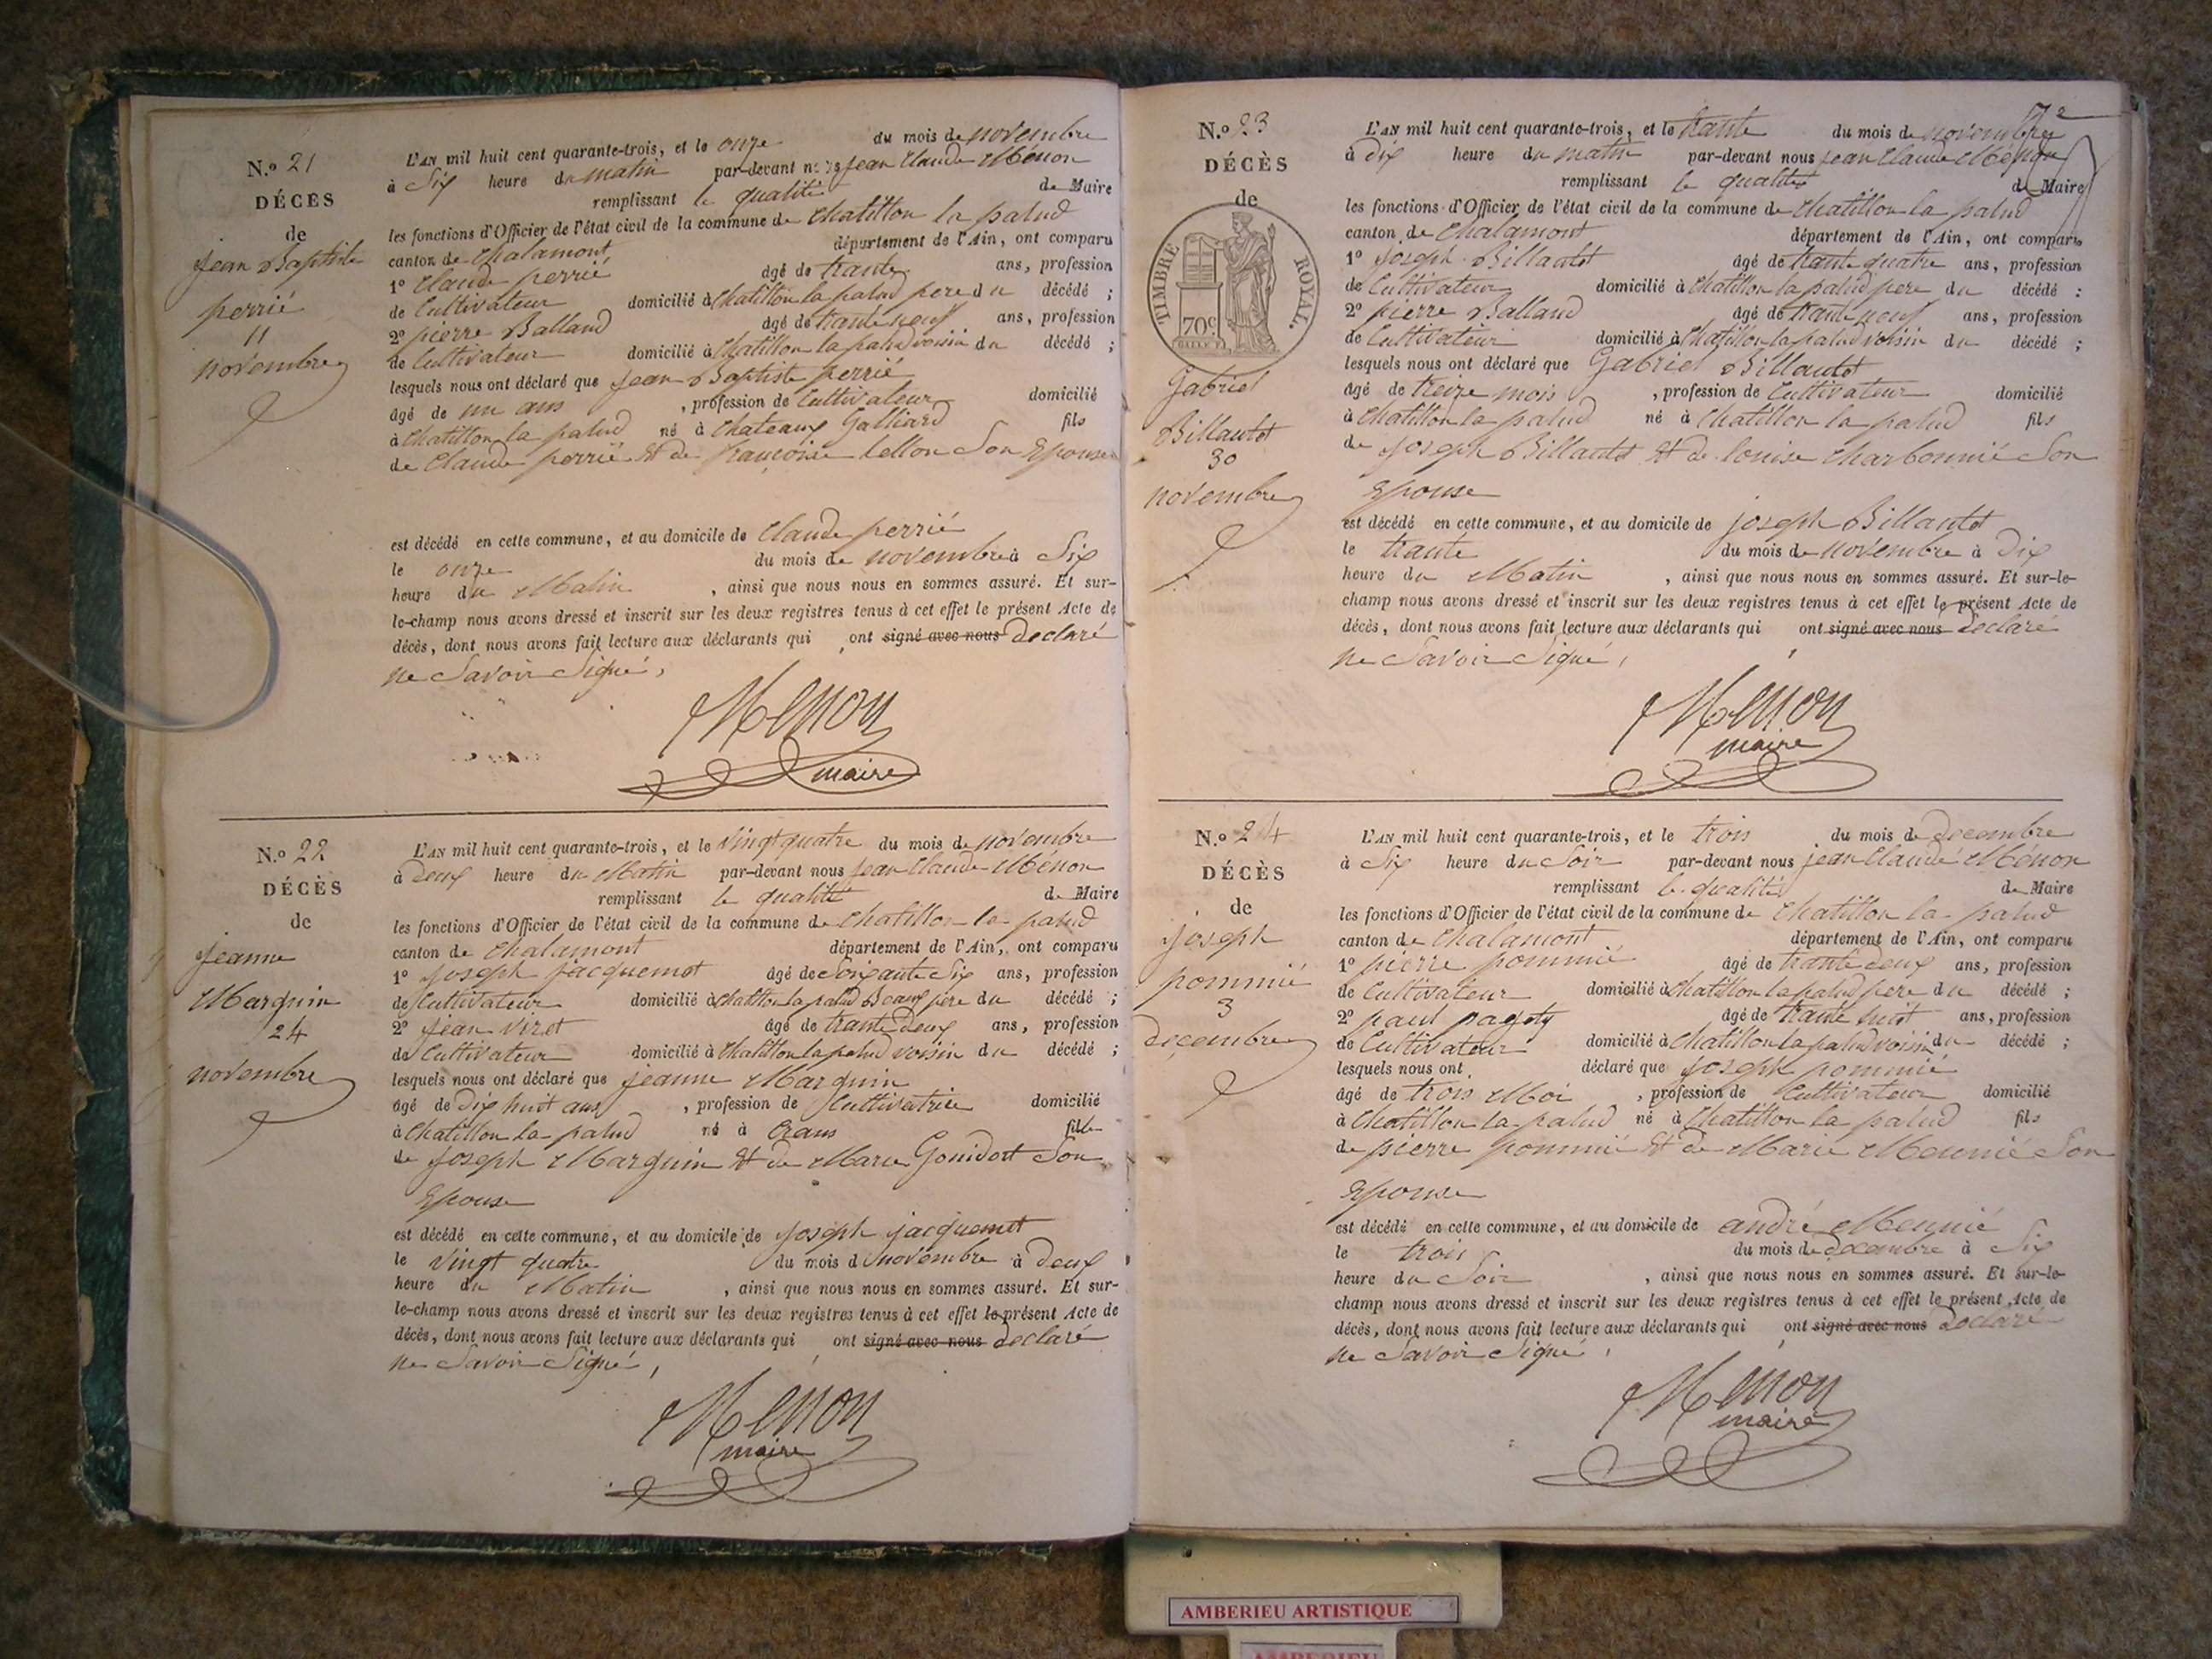 N.º 21
DÉCÈS
de
jean Baptiste
perrié
11
novembre
L'AN mil huit cent quarante-trois, et le onze du mois de novembre
à Six heure du matin par-devant nous jean Claude Ménon
remplissant la qualité de Maire
les fonctions d'Officier de l'état civil de la commune de chatillon la palud
canton de Chalamont département de l'Ain, ont comparu
1º Claude perrié âgé de trante ans, profession
de Cultivateur domicilié à Chatillon la palud pere du décédé ;
2º pierre Balland âgé de trante neuf ans, profession
de Cultivateur domicilié à Chatillon la palud voisin du décédé ;
lesquels nous ont déclaré que jean Baptiste perrié
âgé de un ans , profession de Cultivateur domicilié
à Chatillon la palud né à Chateaux Galliard fils
de Claude perrié Et de françoise lellon Son Epouse
est décédé en cette commune, et au domicile de Claude perrié
le onze du mois de novembre à Six
heure du Matin , ainsi que nous nous en sommes assuré. Et sur-
le-champ nous avons dressé et inscrit sur les deux registres tenus à cet effet le présent Acte de
décès, dont nous avons fait lecture aux déclarants qui ont signé avec nous declaré
ne Savoir Signé,
Menon
maire
N.º 22
DÉCÈS
de
jeanne
Marguin
24
novembre
L'AN mil huit cent quarante-trois, et le Vingt quatre du mois de novembre
à Deux heure du Matin par-devant nous jean Claude Ménon
remplissant la qualité de Maire
les fonctions d'Officier de l'état civil de la commune de Chatillon la palud
canton de Chalamont département de l'Ain, ont comparu
1º joseph jacquemet âgé de Soixante Six ans, profession
de Cultivateur domicilié à Chatillon la palud Beaux pere du décédé ;
2º jean Viret âgé de trante deux ans, profession
de Cultivateur domicilié à Chatillon la palud voisin du décédé ;
lesquels nous ont déclaré que jeanne Marguin
âgé de Dix huit ans , profession de Cultivatrice domicilié
à Chatillon la palud né à Crans fille
de joseph Marguin Et de Marie Gouidort Son
Epouse
est décédé en cette commune, et au domicile de joseph jacquemet
le Vingt quatre du mois de novembre à Deux
heure du Matin , ainsi que nous nous en sommes assuré. Et sur-
le-champ nous avons dressé et inscrit sur les deux registres tenus à cet effet le présent Acte de
décès, dont nous avons fait lecture aux déclarants qui ont signé avec nous declaré
ne Savoir Signé,
Menon
maire
N.º 23
DÉCÈS
de
TIMBRE ROYAL.
70c.
Gabriel
Billautet
30
novembre
L'AN mil huit cent quarante-trois, et le trante du mois de novembre
à Dix heure du matin par-devant nous jean Claude Ménon
remplissant la qualité de Maire
les fonctions d'Officier de l'état civil de la commune de Chatillon la palud
canton de Chalamont département de l'Ain, ont comparu
1º joseph Billautet âgé de trante quatre ans, profession
de Cultivateur domicilié à Chatillon la palud pere du décédé ;
2º pierre Balland âgé de trante neuf ans, profession
de Cultivateur domicilié à Chatillon la palud voisin du décédé ;
lesquels nous ont déclaré que Gabriel Billautet
âgé de treize mois , profession de Cultivateur domicilié
à Chatillon la palud né à Chatillon la palud fils
de joseph Billautet Et de louise Charbonnié Son
Epouse
est décédé en cette commune, et au domicile de joseph Billautet
le trante du mois de novembre à Dix
heure du Matin , ainsi que nous nous en sommes assuré. Et sur-le-
champ nous avons dressé et inscrit sur les deux registres tenus à cet effet le présent Acte de
décès, dont nous avons fait lecture aux déclarants qui ont signé avec nous declaré
ne Savoir Signé,
Menon
maire
N.º 24
DÉCÈS
de
joseph
pommié
3
decembre
L'AN mil huit cent quarante-trois, et le trois du mois de decembre
à Six heure du Soir par-devant nous jean Claude Ménon
remplissant la qualité de Maire
les fonctions d'Officier de l'état civil de la commune de Chatillon la palud
canton de Chalamont département de l'Ain, ont comparu
1º pierre pommié âgé de trante deux ans, profession
de Cultivateur domicilié à Chatillon la palud pere du décédé ;
2º paul pagety âgé de trante huit ans, profession
de Cultivateur domicilié à Chatillon la palud voisin du décédé ;
lesquels nous ont déclaré que joseph pommié
âgé de trois Moi , profession de Cultivateur domicilié
à Chatillon la palud né à Chatillon la palud fils
de pierre pommié Et de Marie Meunié Son
Epouse
est décédé en cette commune, et au domicile de andré Meunié
le trois du mois de decembre à Six
heure du Soir , ainsi que nous nous en sommes assuré. Et sur-le-
champ nous avons dressé et inscrit sur les deux registres tenus à cet effet le présent Acte de
décès, dont nous avons fait lecture aux déclarants qui ont signé avec nous declaré
ne Savoir Signé,
Menon
maire
AMBERIEU ARTISTIQUE